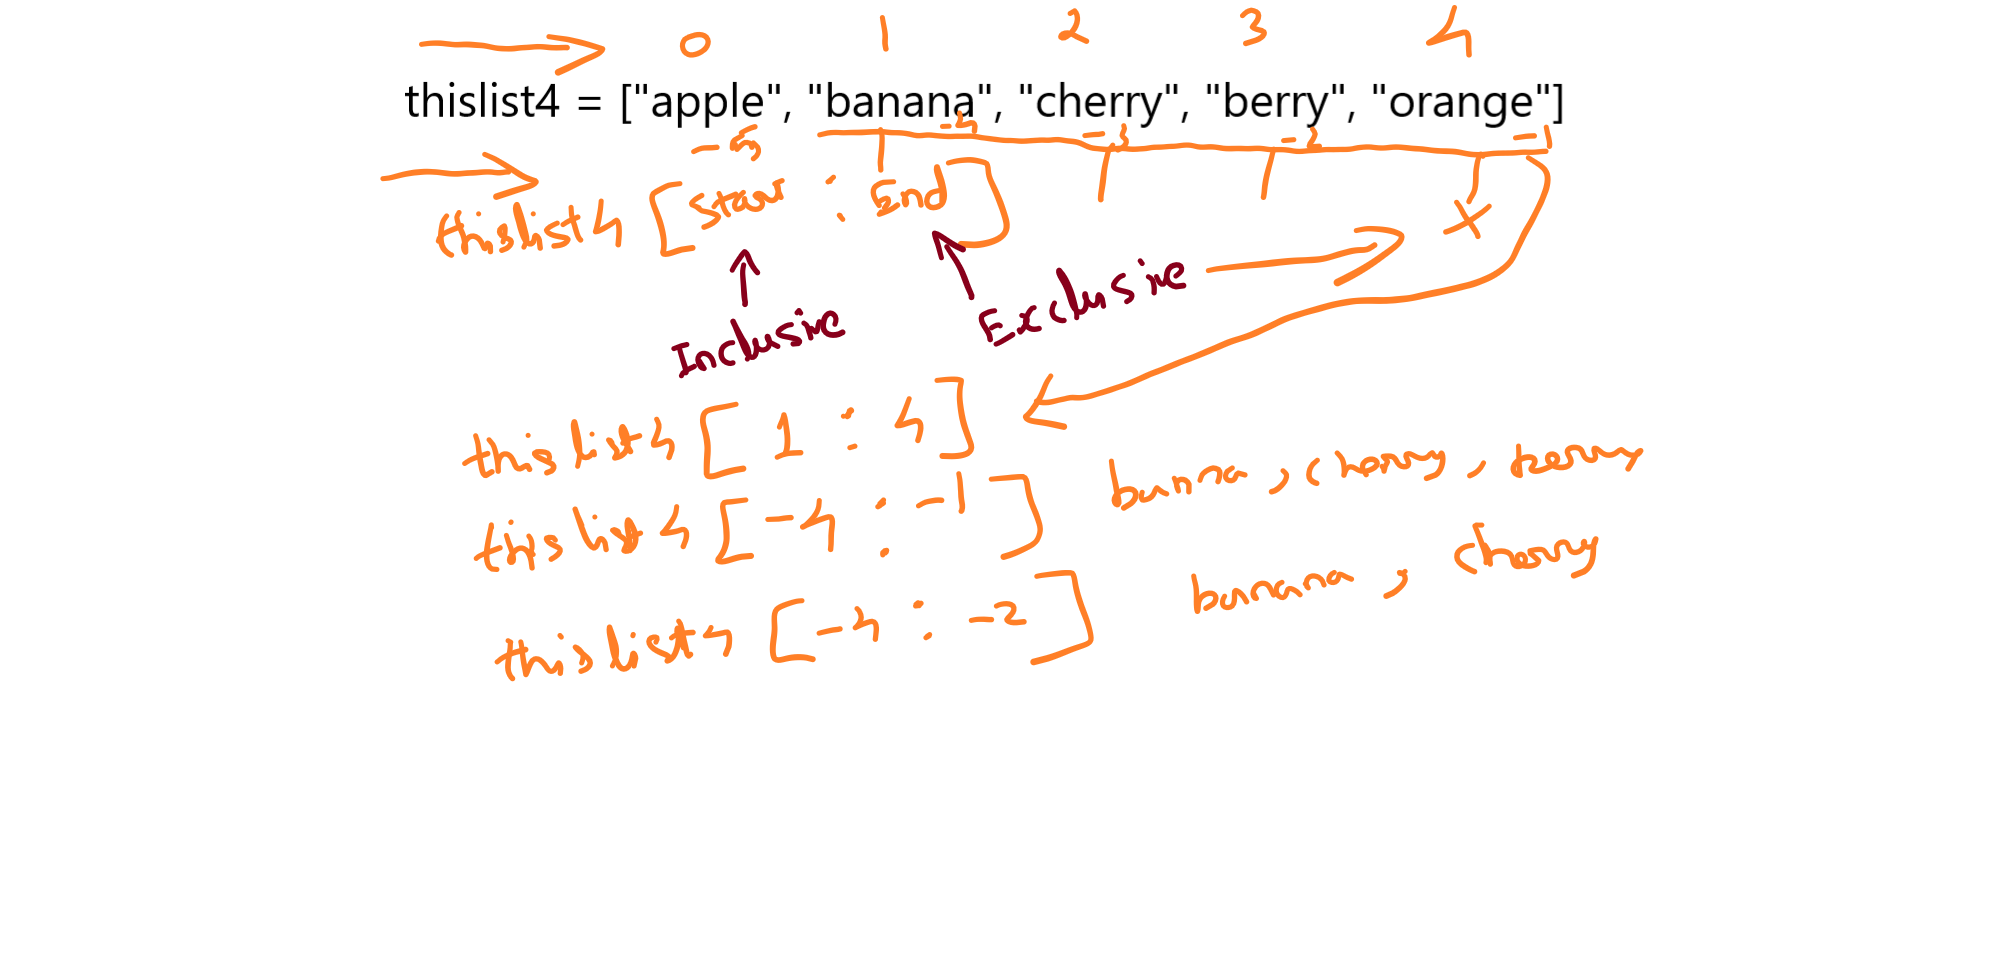 0 1 2 3 4
thislist4 = ["apple", "banana", "cherry", "berry", "orange"]
-5 -4 -3 -2 -1
thislist4 [Start : End]
Inclusive Exclusive X
thislist4 [1 : 4]
thislist4 [-4 : -1] banna, cherry, berry
thislist4 [-4 : -2] banana, cherry